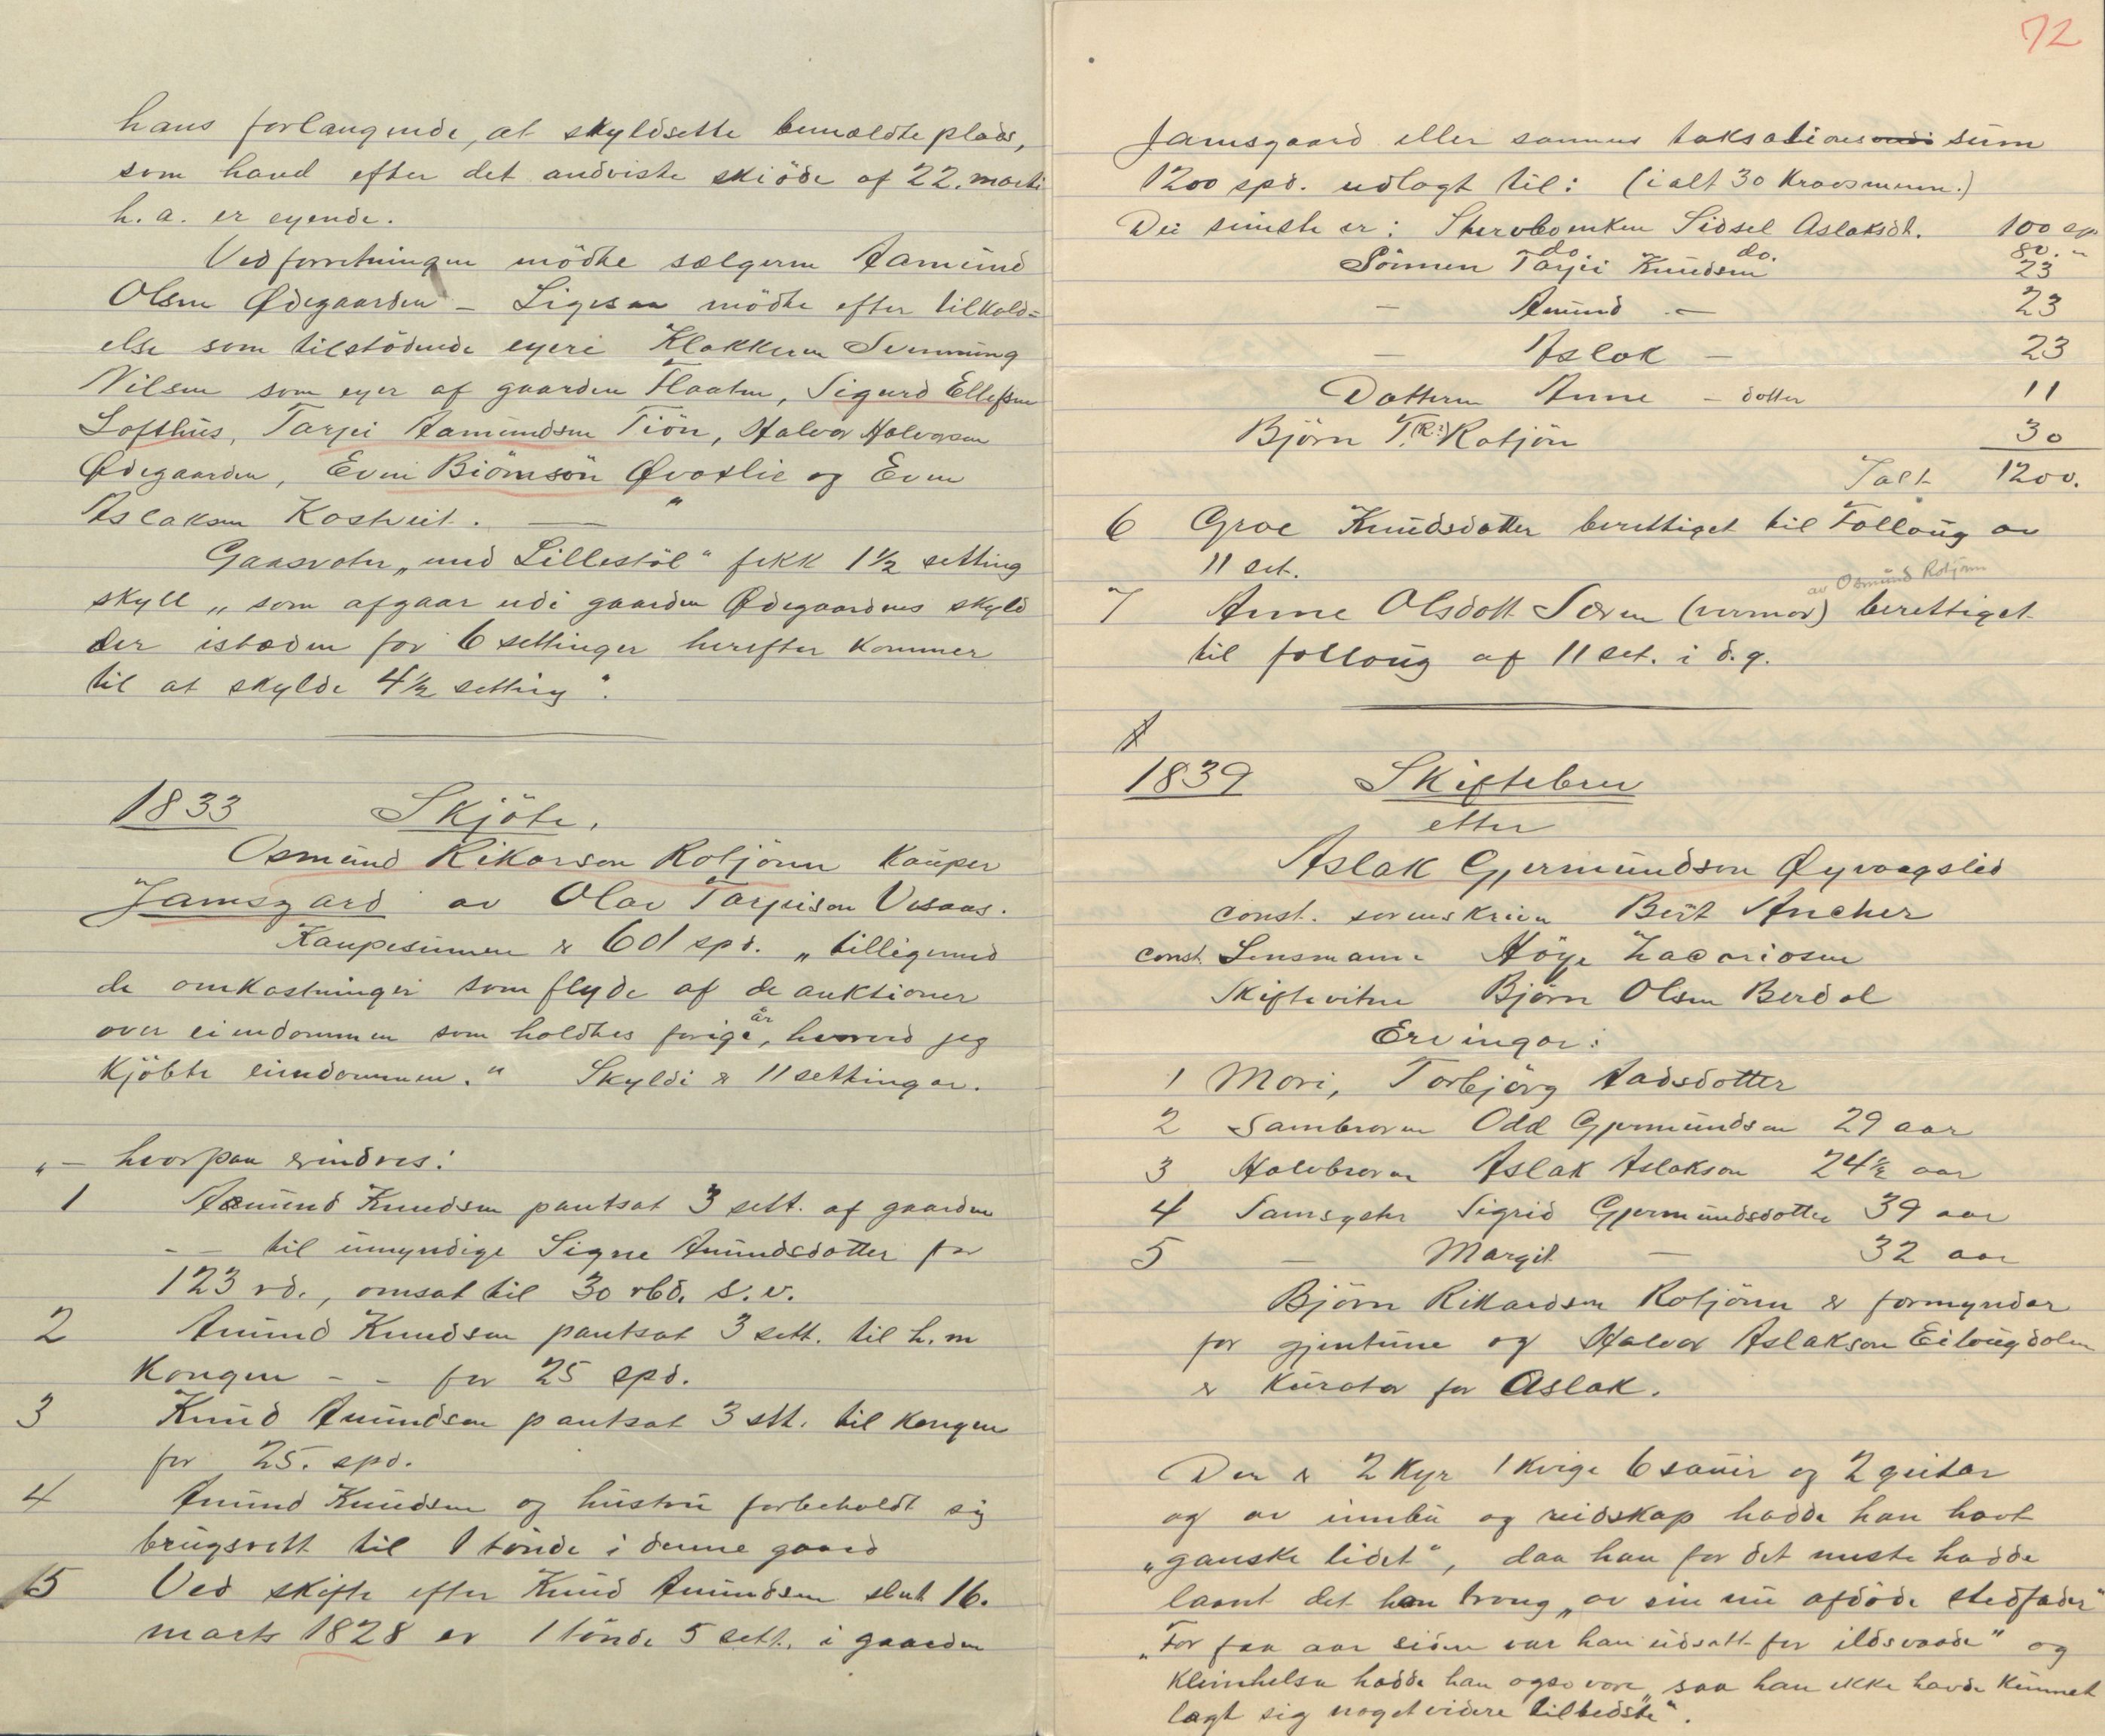 hans forlangende, at skyldsette bemældte plads,
som hand efter det andviste skiöde af 22. marti
h. a. er eyende.
Ved forretningen mödte sælgeren Aamund
Olsen Ødegaarden – Ligesaa mödte efter tilkald=
else som tilstödende eyere Klokkeren Svenning
Nilsen som eyer af gaarden Flaaten, Sigurd Ellefsen
Lofthus, Tarjei Aamundsen Tiön, Halvor Halvorsen
Ødegaarden, Even Biörnsön Qvaslie og Even
Aslaksen Kostveit. — "
Gaasvatn „med Lillestöl" fekk 1½ setting
skyll „som afgaar udi gaarden Ødegaardens skyld
der istæden for 6 settinger herefter kommer
til at skylde 4½ setting".
1833 Skjöte.
Osmund Rikardson Rotjönn kauper
Jamsgard av Olav Tarjeison Vesaas.
Kaupesummen er 601 spd. „tilligemed
de omkostninger som flyde af de auktioner
over eiendommen som holdtes forige år, hvorved jeg
kjöbte eiendommen." Skyldi er 11 settingar.
„– hvorpaa erindres:
1 Aamund Knudsen pantsat 3 sett. af gaarden
– – til umyndige Signe Amundsdotter for
123 rd., omsat til 30 rbd. s. v.
2 Amund Knudsen pantsat 3 sett. til h. m
Kongen – – for 25 spd.
3 Knud Amundsen pantsat 3 stt. til Kongen
for 25. spd.
4 Amund Knudsen og hustru forbeholdt sig
brugsrett til 1 tönde i denne gaard
5 Ved skifte efter Knud Amundsen slut 16.
marts 1828 er 1 tönde 5 sett. i gaarden
72
Jamsgaard eller sammes taksationssum
1200 spd. udlagt til: (ialt 30 Kravsmenn.)
Dei siniste er: Stervboenken Sidsel Aslaksdt. 100 sp
do. do. 80. "
Sönnen Tarjei Knudsen 23
— Amund — 23
— Aslak — 23
Datteren Anne – dotter 11
Björn T. (R:) Rotjön 30
Ialt 1200.
6 Groe Knudsdotter berettiget til Follaug av
11 set.
av Osmund Rotjönn
7 Anne Olsdott. (vermor) berettiget
til follaug af 11 set. i d. g.
1839 Skiftebrev
etter
Aslak Gjermundson Øyvaagslid
const. sorenskriver Bent Ancher
const. Lensmann Höye Zacariasen
Skiftevitne Björn Olsen Berdal
Ervingar:
1 Mori, Torbjörg Aadsdotter
2 Sambroren Odd Gjermundsen 29 aar
3 Halvbroren Aslak Aslakson 24½ aar
4 Samsyster Sigrid Gjermundsdotter 39 aar
5 — Margit — 32 aar
Björn Rikardsen Rotjönn er formyndar
for gjentune og Halvor Aslakson Eilaugdalen
er Kurator for Aslak.
Der er 2 Kyr 1 kvige 6 sauir og 2 geitar
og av innbu og reidskap hadde han havt
„ganske lidet", daa han for det meste hadde
laant det han trong „av sin nu afdöde stedfader"
„For faa aar siden var han udsatt for ildsvaade" og
kleinhelsa hadde han ogso vore „saa han ikke havde kunnet
lagt sig noget videre tilbedste".